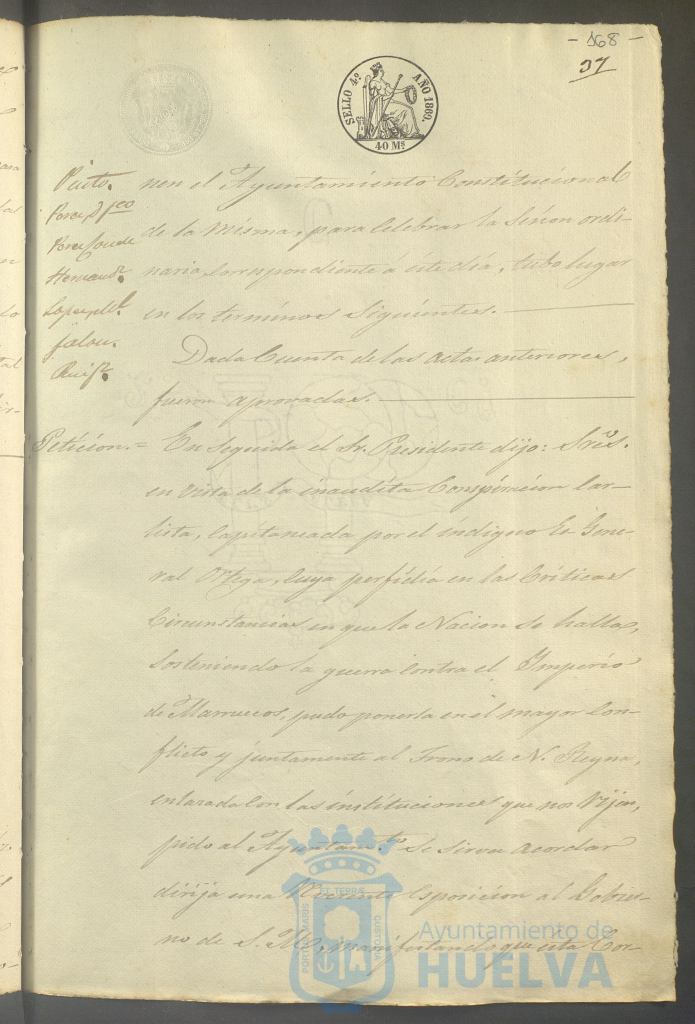 - 168 -
37
SELLO 4º AÑO 1860.
40 Ms
Pinto.
Hernandz.
Ruifz.
nen el Ayuntamiento Constitucional
de la misma, para celebrar la Señon ordi-
naria correspondiente á este dia, tubo lugar
en los terminos siguientes.
Dada Cuenta de las actas anteriores,
fueron aprovadas.
Peticion.= En seguida el Sr. Presidente dijo: Sres.
en vista de la inaudita Conspiracion Car-
lista, Capitaneada por el indigno Ex Gene-
ral Ortega, cuya perfidia en las Criticas
Circunstancias en que la Nacion se halla,
sosteniendo la guerra contra el Imperio
de Marruecos, pudo ponerla en el mayor Con-
flicto y juntamente al Trono de N. Reyna,
enlazada con las instituciones que nos rijen,
pido al Ayuntamto. Se sirva acordar
dirija una Reverente Esposicion al Gobier-
no de S. M., manifestando que esta Cor-
PORTUS MARIS ET TERRÆ CUSTODIA
Ayuntamiento de
HUELVA